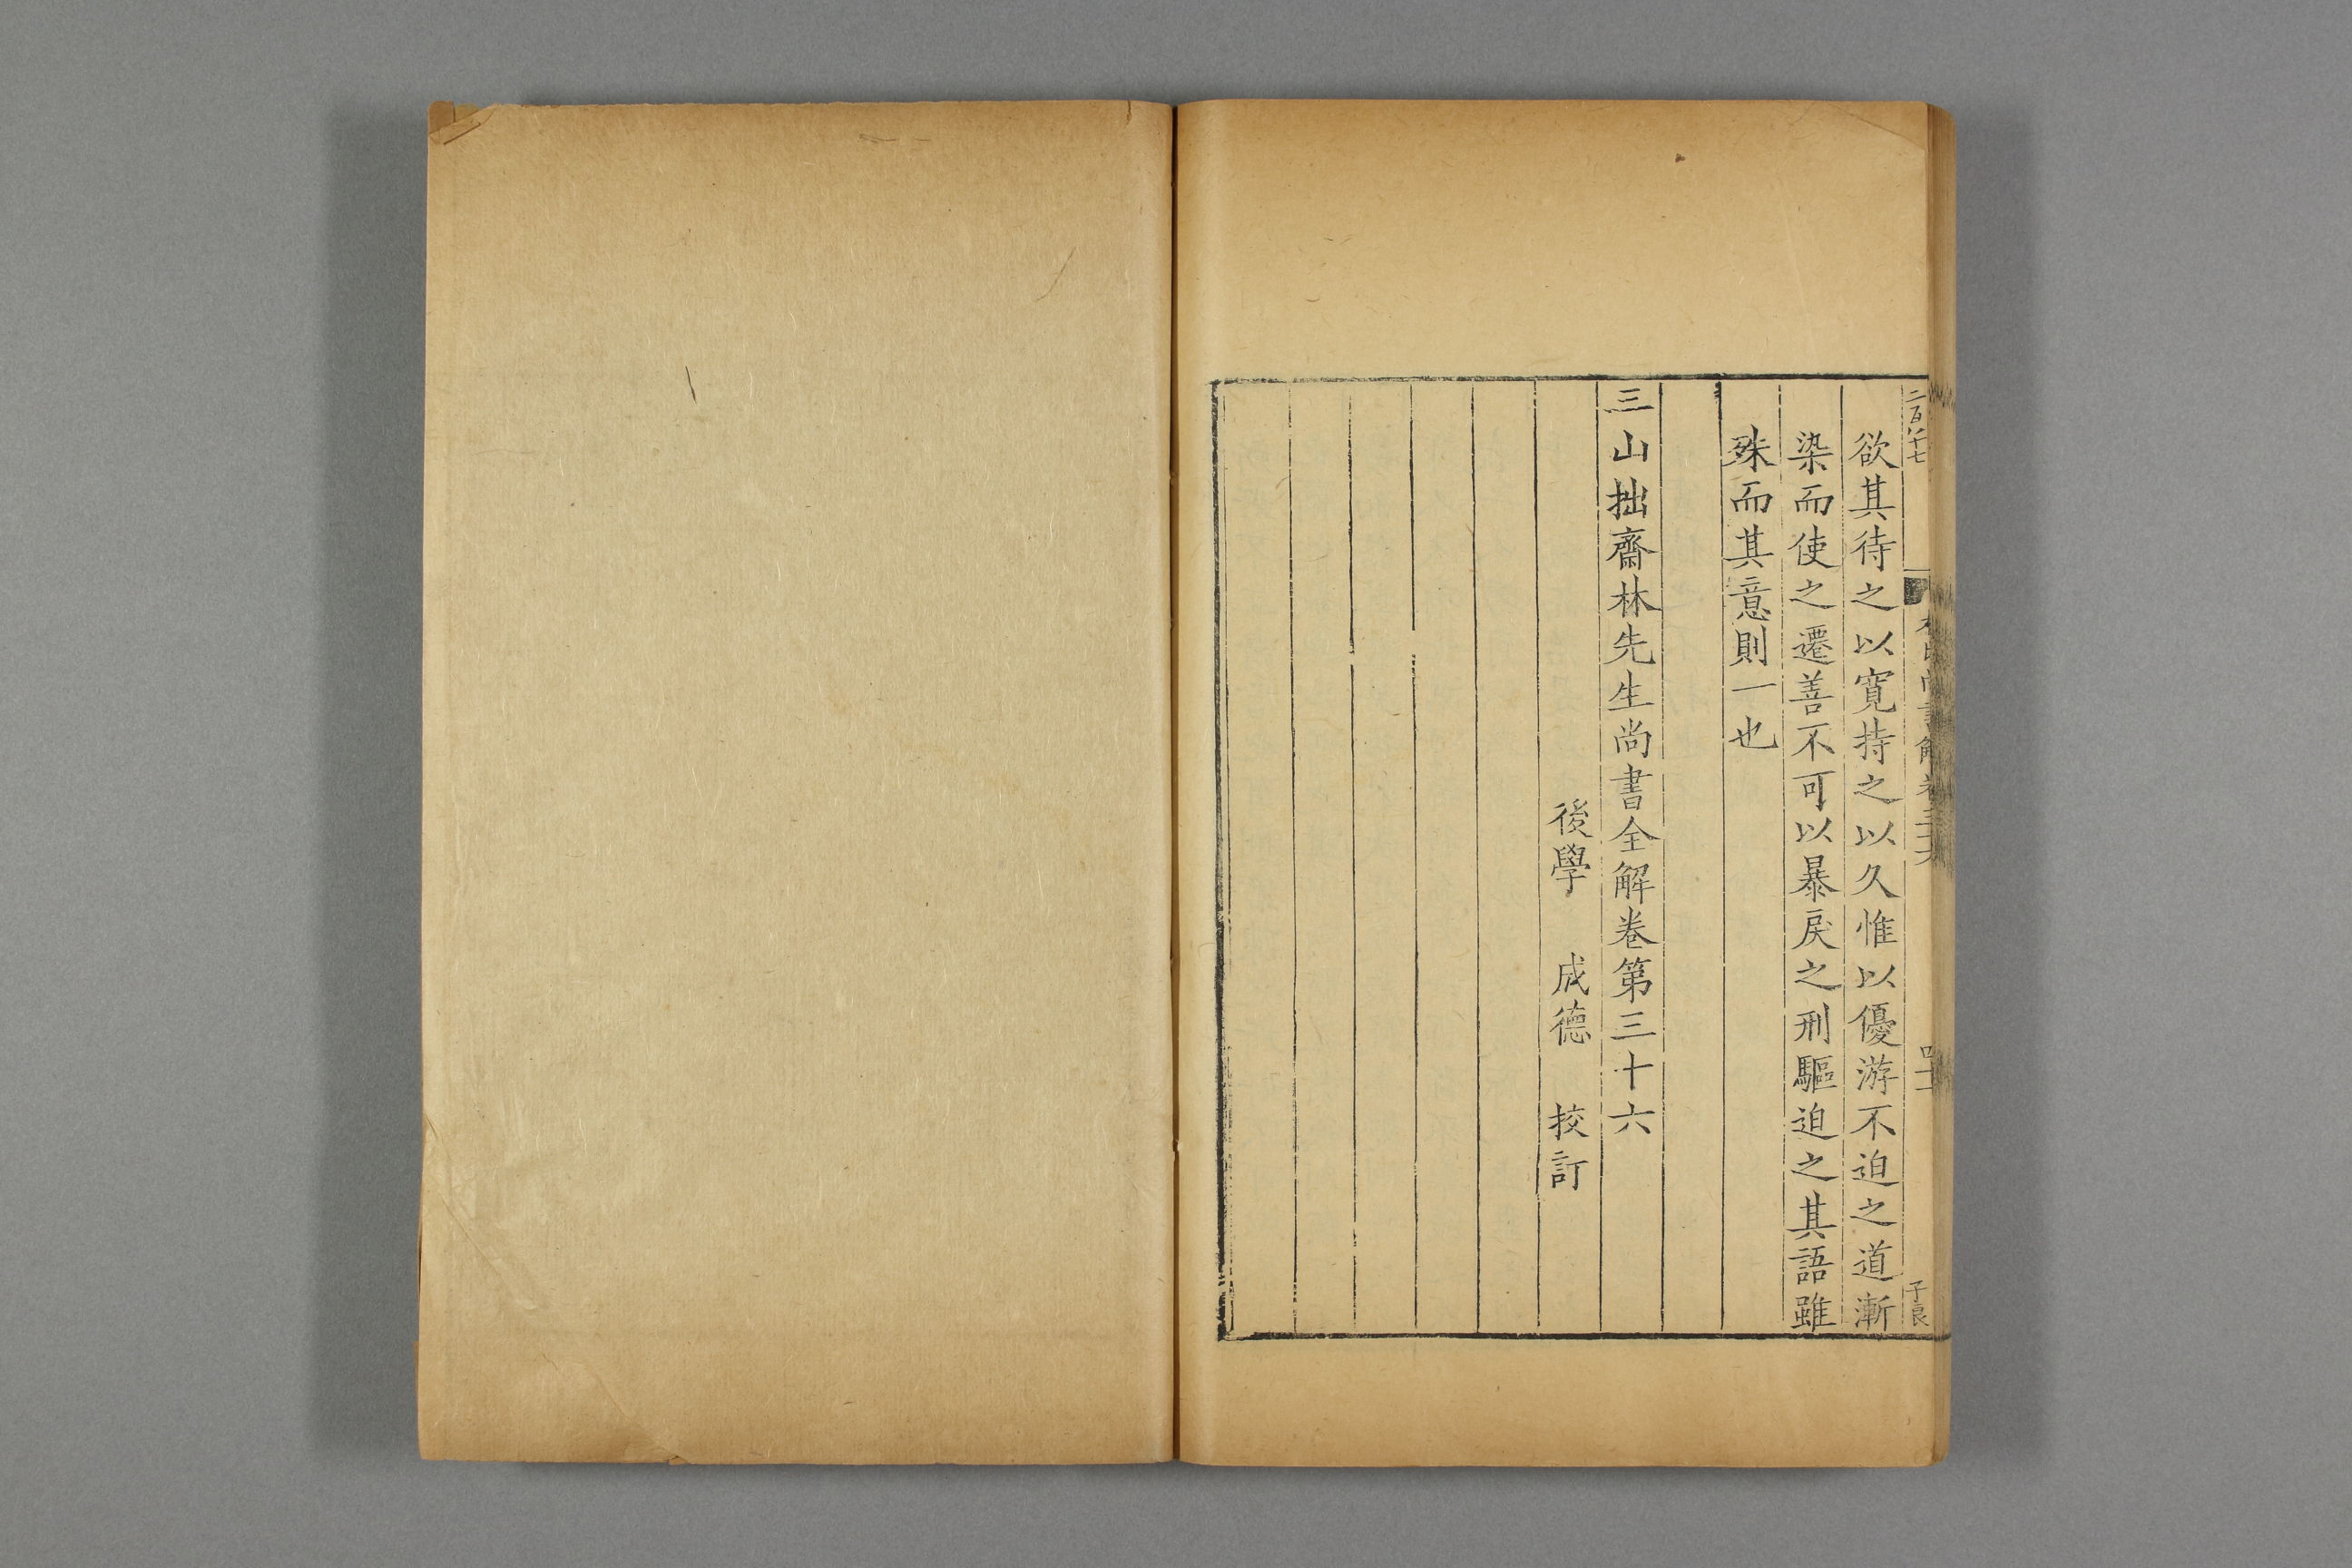 欲其待之以寛持之以久惟以優游不迫之道漸
染而使之遷善不可以暴戾之刑驅迫之其語雖
殊而其意則一也
三山拙齋林先生尚書全解卷第三十六
後學 成德 挍訂
子良